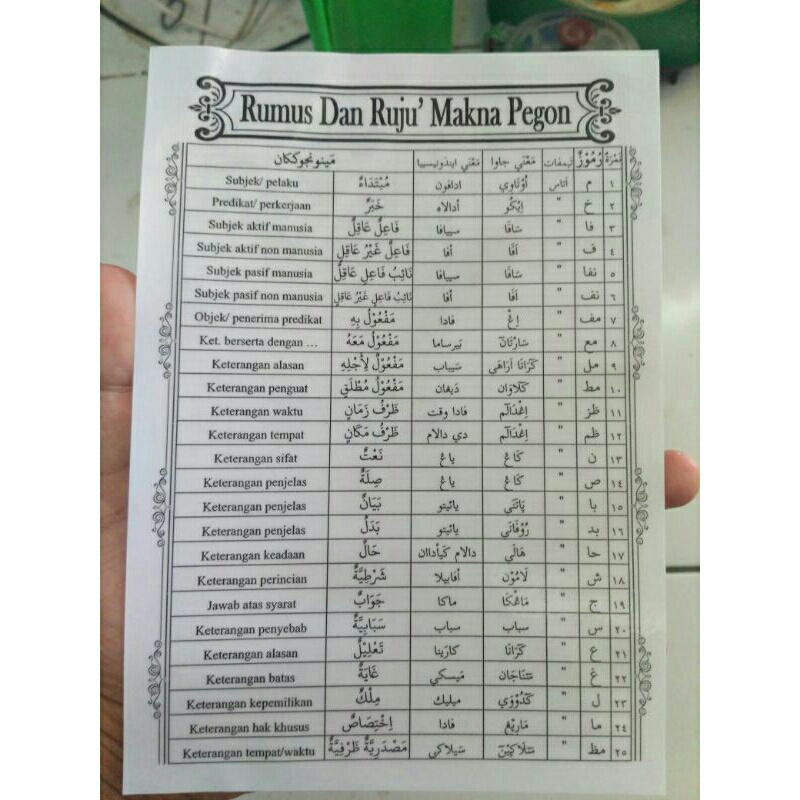 Rumus Dan Ruju' Makna Pegon
نمرة رموز تيمفات مَعْنَي جاوا مَعْنَي ايندونيسييا مَينونجوككان
١ م اتاس اُوْتَاوِي ادافون مُبْتَدَاءٌ Subjek/ pelaku
٢ خ " اِيْكُو أدالاه خَبَرٌ Predikat/ perkerjaan
٣ فا " سَافَا سييافا فَاعِلٌ عَاقِلٌ Subjek aktif manusia
٤ ف " اَفَا أفا فَاعِلٌ غَيْرُ عَاقِلٍ Subjek aktif non manusia
٥ نفا " سَافَا سييافا نَائِبُ فَاعِلِ عَاقِلٌ Subjek pasif manusia
٦ نف " اَفَا أفا نَائِبُ فَاعِلِ غَيْرُ عَاقِلٍ Subjek pasif non manusia
٧ مف " اِغْ فادا مَفْعُوْلٌ بِهِ Objek/ penerima predikat
٨ مع " سَارْتَانَ بَيرساما مَفْعُوْلٌ مَعَهُ Ket. berserta dengan ...
٩ مل " كَرَانَا اَرَاهَي سَيباب مَفْعُوْلٌ لِأَجْلِهِ Keterangan alasan
١٠ مط " كَلَاوَان دَيغان مَفْعُوْلٌ مُطْلَقٌ Keterangan penguat
١١ ظز " اِغْدَالَم فادا وقت ظَرْفُ زَمَانٍ Keterangan waktu
١٢ ظم " اِغْدَالَم دي دالام ظَرْفُ مَكَانٍ Keterangan tempat
١٣ ن " كَاغ ياغ نَعْتٌ Keterangan sifat
١٤ ص " كَاغ ياغ صِلَةٌ Keterangan penjelas
١٥ با " يَاتَنَي يائيتو بَيَانٌ Keterangan penjelas
١٦ بد " رُوْفَانَي يائيتو بَدَلٌ Keterangan penjelas
١٧ حا " هَالَي دالام كَيأداان حَالٌ Keterangan keadaan
١٨ ش " لَامُوْن أفابيلا شَرْطِيَّةٌ Keterangan perincian
١٩ ج " مَاغْكَا ماكا جَوَابٌ Jawab atas syarat
٢٠ س " سباب سباب سَبَابِيَّةٌ Keterangan penyebab
٢١ ع " كَرَانَا كارَينا تَعْلِيْلٌ Keterangan alasan
٢٢ غ " سَنَاجَان مَيسكي غَايَةٌ Keterangan batas
٢٣ ل " كَدُوْوَي ميليك مِلْكٌ Keterangan kepemilikan
٢٤ ما " مَارِيْغ فادا اِخْتِصَاصٌ Keterangan hak khusus
٢٥ مظ " سَلَاكِيْنَ سَيلاكي مَصْدَرِيَّةٌ ظَرْفِيَّةٌ Keterangan tempat/waktu